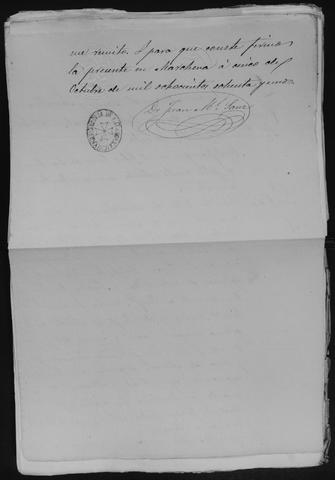 me remito. Y para que conste firmo
la presente en Marchena á once de
Octubre de mil ochocientos ochenta y uno
Dr Juan Mª